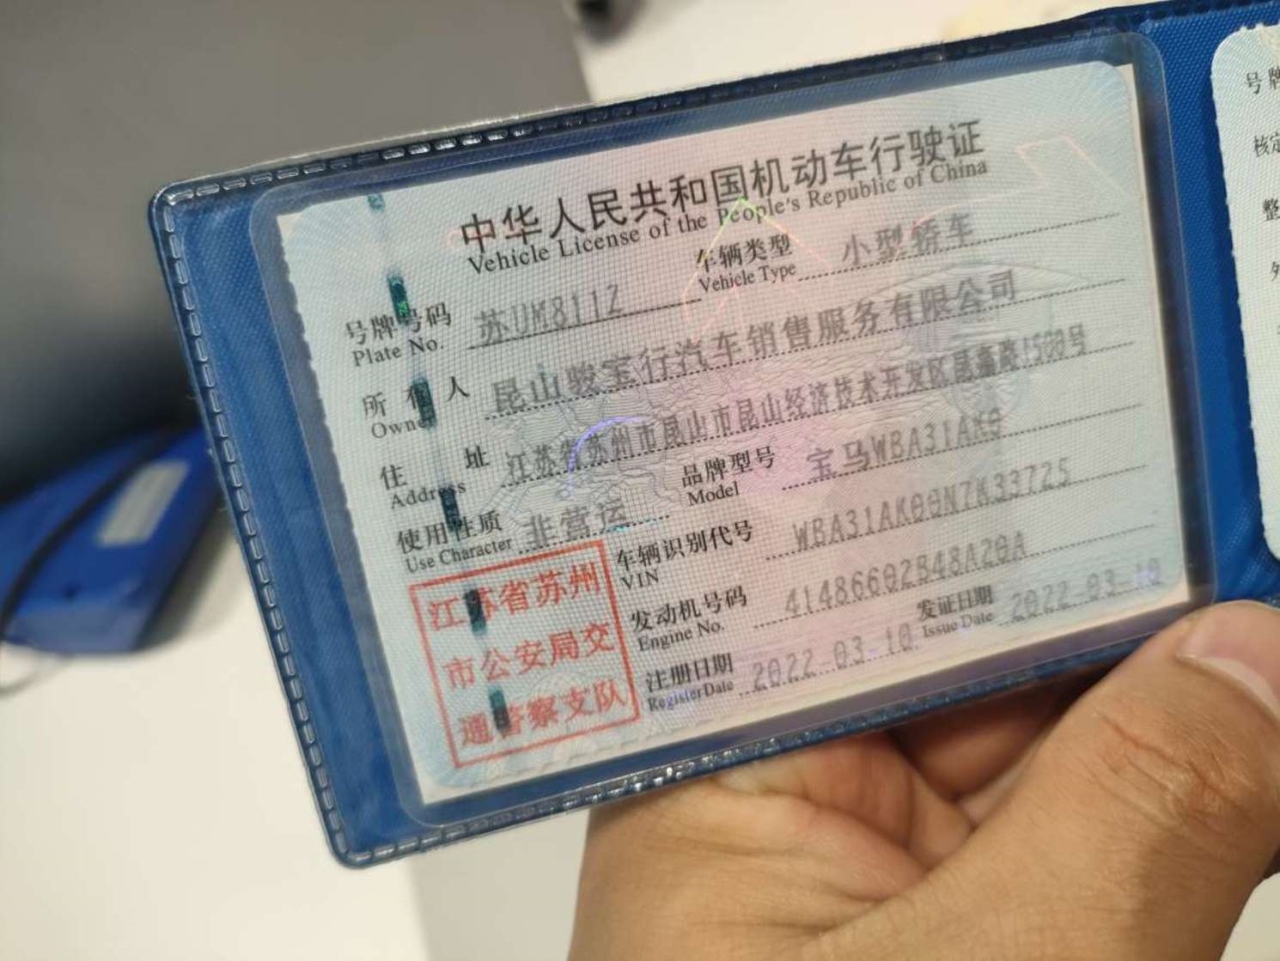 中华人民共和国机动车行驶证
Vehicle License of the People's Republic of China
号牌号码 苏UM811Z 车辆类型 小型轿车
Plate No. Vehicle Type
所有人 昆山骏宝行汽车销售服务有限公司
Owner
住址 江苏省苏州市昆山市昆山经济技术开发区昆嘉路1500号
Address
品牌型号 宝马WBA31AK0
Model
使用性质 非营运
Use Character
车辆识别代号 WBA31AK00N7K33725
VIN
发动机号码 41486602B48A20A
Engine No.
发证日期 2022-03-10
Issue Date
注册日期 2022-03-10
Register Date
江苏省苏州
市公安局交
通警察支队
号牌
核定
整
外